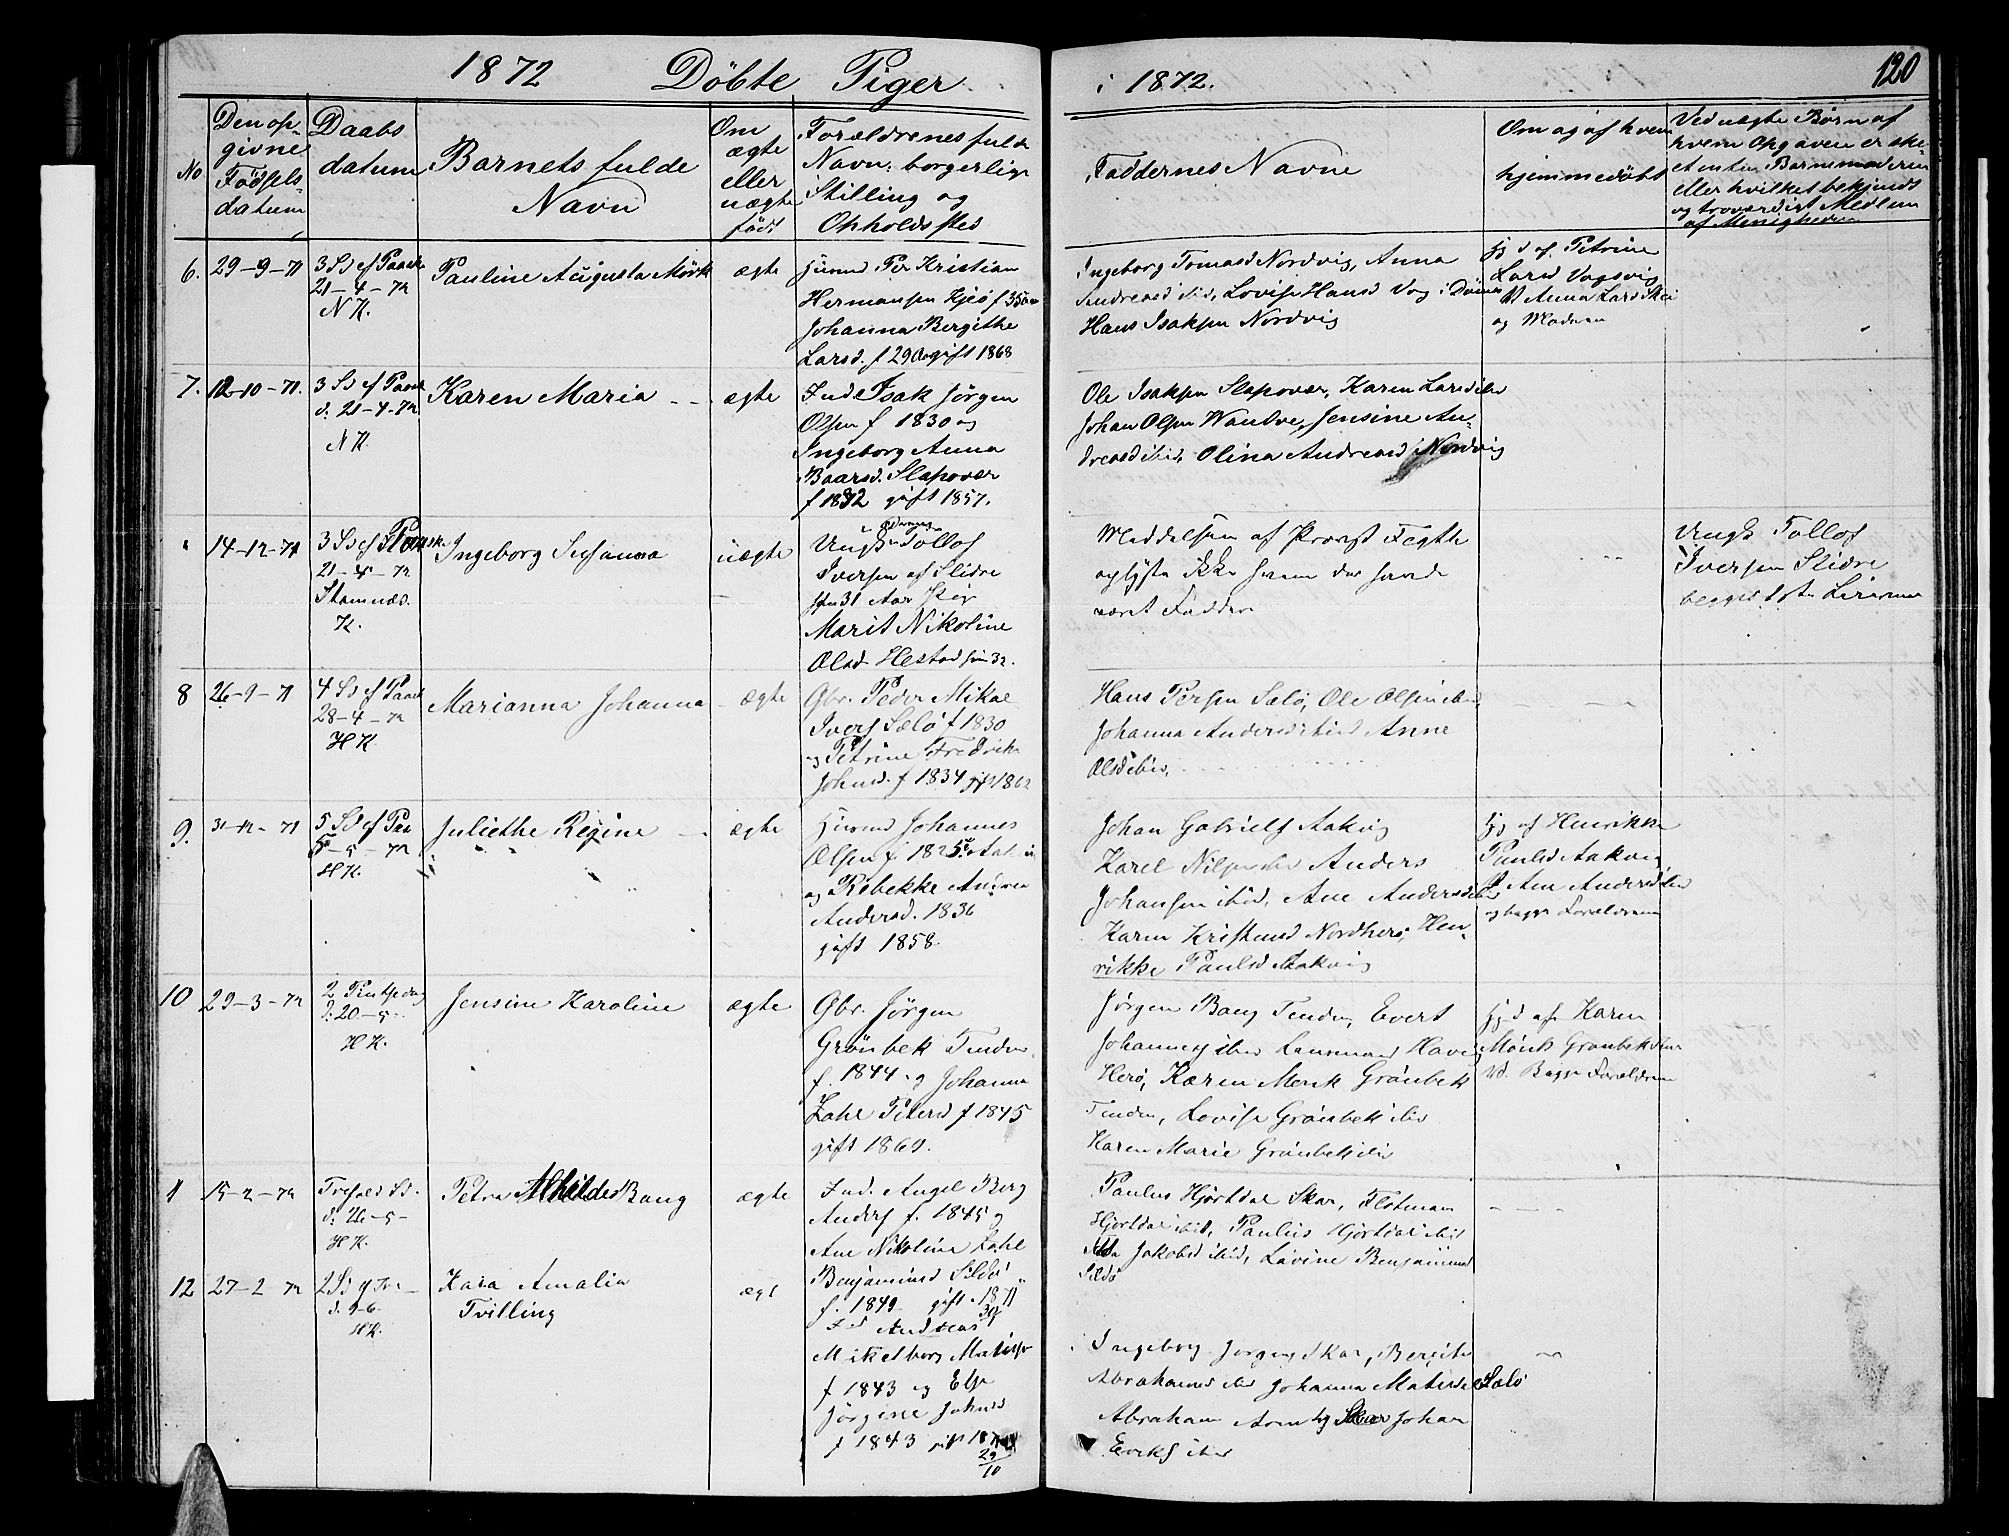 1872 Döbte Piger
i 1872.
120
No
Den op-
givne
Födsels
datum
Daabs
datum
Barnets fulde
Navn
Om
ægte
eller
uægte
född
Forældrenes fulde
Navn: borgerlige
Stilling og
Opholdssted
Faddernes Navne
Om og af hvem
hjemmedöbt
Ved uægte Børn af
hvem Opgaven er ske-
et enten Barnemoderen
eller hvilket bekjendt
og troværdigt Medlem
af Menigheden
6.
29-9-71
3 Sd ef Paask
21-4-72
N K.
Pauline Augusta Mörk
ægte
Huusmd Per Kristian
Hermansen
Johanna Bergithe
Larsd. f 29 gift 1868
Ingeborg Tomasd Nordvig, Anna
Andreasd ibid, Lovise Hansd Vog i Dönnes
Hans Isaksen Nordvig
Hj d af Petrine
Larsd Vogsvig
V Anna Larsd
og Moderen
7.
12-10-71.
3 Sd ef Paask
d. 21-4-72
N K.
Karen Maria
ægte
Ind Isak Jörgen
Olsen f 1830 og
Ingeborg Anna
Baarsd. Slapovær
f 1832 gift 1857.
Ole Isaksen Slapovær, Karen Larsd ibid
Johan Olsen Wandve, Jensine An-
dreasd ibid, Olina Andreasd Nordvig
14-12-71
3 Sd ef Paask.
21-4-72
Stamnæs.
K.
Ingeborg Susanna
uægte
Ungk Tollof
Iversen af Slidre
31 Aar Pige
Marit Nikoline
Olsd Hestad 32.
Meddelsen af Provst Fegth
oplyste ikke hvem der havde
været Faddere
Ungk Tollof
Iversen Slidre
8
26-9-71
4 Sd ef Paask
28-4-72
H K.
Marianna Johanna
ægte
Gbr. Peder Mikal
Ivers Sælö f 1830
og Petrine Fredrikke
Johnsd. f 1834 gift 1862
Hans Persen Salö, Ole Olsen ibid
Johanna Andersd ibid Anne
Olsd ibid,
9.
31-12-71
5 Sd ef Paa
5-5-72
H K.
Juliethe Regine
ægte
Huusmd Johannes
Olsen f 1825
og Rebekke Andrea
Andersd. 1836
gift 1858.
Johan Gabriels Aakvig
Karel Nilsen ibid Anders
Johansen ibid, Ane Andersd ibid
Karen Kristensd Nordherö, Hen-
rikke Paulsd Aakvig
Hj af Henrikke
Paulsd Aakvig
V Ane Andersd ibid
og begge Forældrene
10
29-3-72
2 Pintsedag
d. 20-5-
H K.
Jensine Karoline
ægte
Gbr. Jörgen
Grönbek Tenden
f. 1844 og Johanna
Zahl Petersd f 1845
gift 1869.
Jörgen Bang Tenden, Evert
Johannes ibid Lensmand Havig
Herö, Karen Mörk Grönbek
Tenden, Lovise Grönbek ibid
Karen Marie Grönbek ibid
Hj d af Karen
Mörk Grönbek Tenden
Vd. Begge Forældrene
11
15-2-72
Trefold Sd.
d. 26-5-
H K.
Petra Athilde Bang
ægte
Ind. Angel Berg
Anders f. 1845 og
Ane Nikoline Zahl
Benjaminsd Sildö
f. 1849 gift 1871
Paulus Hjortdal Skar, Flotman
Hjortdal ibid, Paulus Hjortdal ibid
Jakobsd ibid, Lavine Benjaminsd
Sildö
12
27-2 72
2 Sd ef Tre
d. 9-6-
H K.
Kaia Amalia
Tvilling
ægt
Ind Andreas
Mikelborg Mathis
f 1843 og Else
Jörgine Johnsd
f 1843 gift
29/10
Ingeborg Jörgens Skar, Bergite
Abrahamsd ibid Johanna Matisd Sælö
Abraham Arntz Skar Johan
Eriks ibid